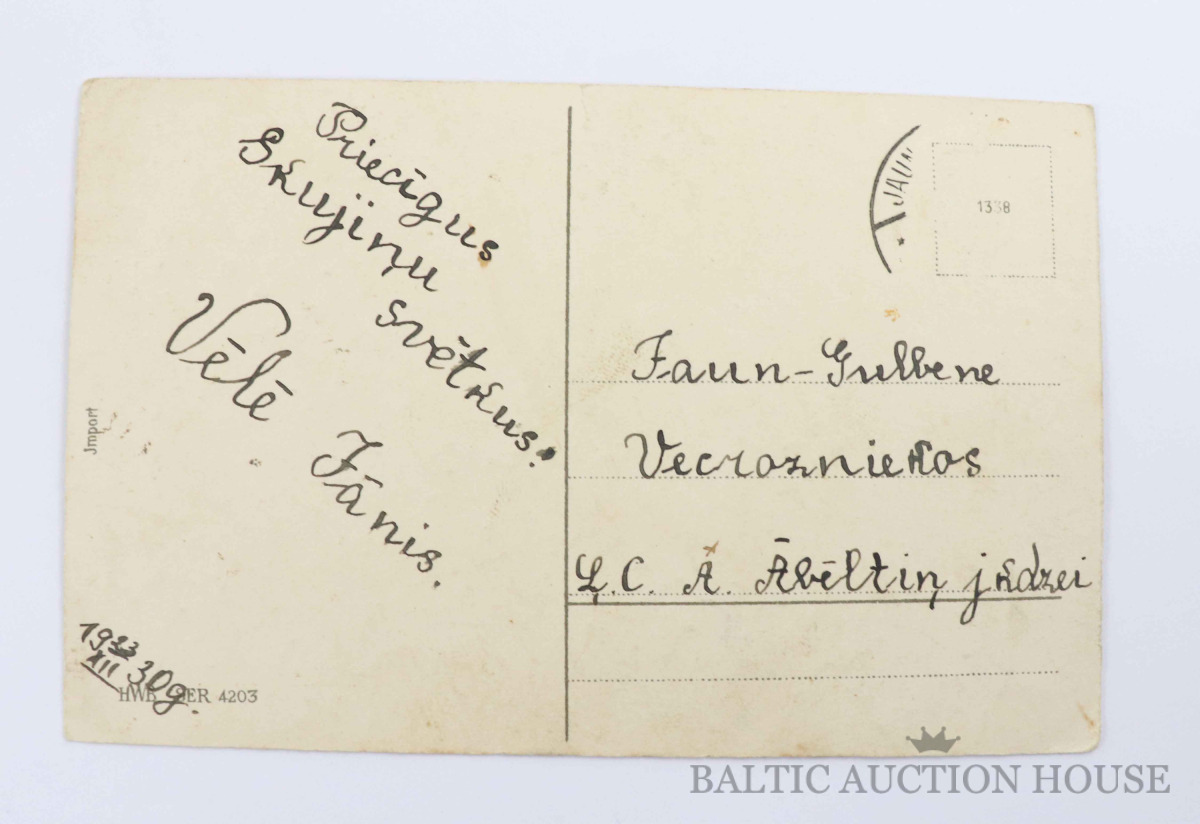 Priecīgus
Skujiņu
svētkus!
Vēlē
Jānis.
Import
19 23/XII 30g.
HWB SER 4203
JAUN
1338
Jaun-Gulbene
Vecrozniekos
Ļ.C. A. Ābēltiņ jkdzei
BALTIC AUCTION HOUSE